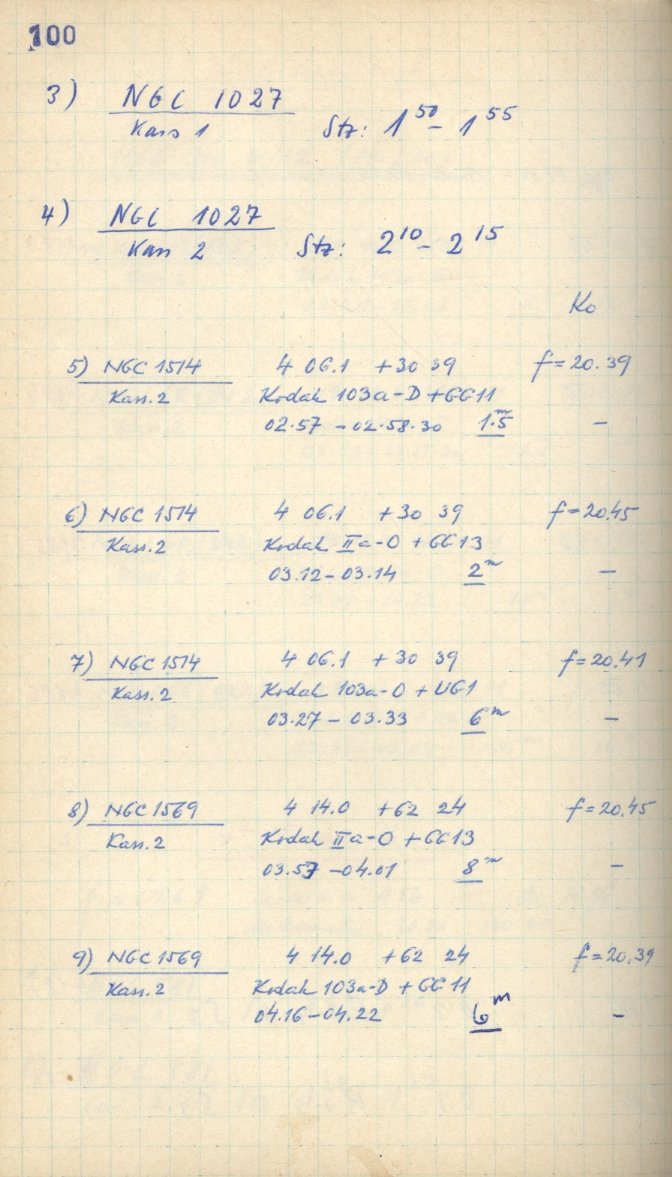 100
3) NGC 1027
Kass 1 Stz: 1 50 - 1 55
4) NGC 1027
Kass 2 Stz: 2 10 - 2 15
Ko
5) NGC 1514 4 06.1 +30 39 f=20.39
Kass.2 Kodak 103a-D + GG11
02.57 - 02.58.30 1.5 m -
6) NGC 1514 4 06.1 +30 39 f=20.45
Kass.2 Kodak IIa-O + GG13
03.12 - 03.14 2 m -
7) NGC 1514 4 06.1 +30 39 f=20.41
Kass.2 Kodak 103a-O + UG1
03.27 - 03.33 6 m -
8) NGC 1569 4 14.0 +62 24 f=20.45
Kass.2 Kodak IIa-O + GG13
03.53 - 04.01 8 m -
9) NGC 1569 4 14.0 +62 24 f=20.39
Kass.2 Kodak 103a-D + GG 11
04.16 - 04.22 6 m -